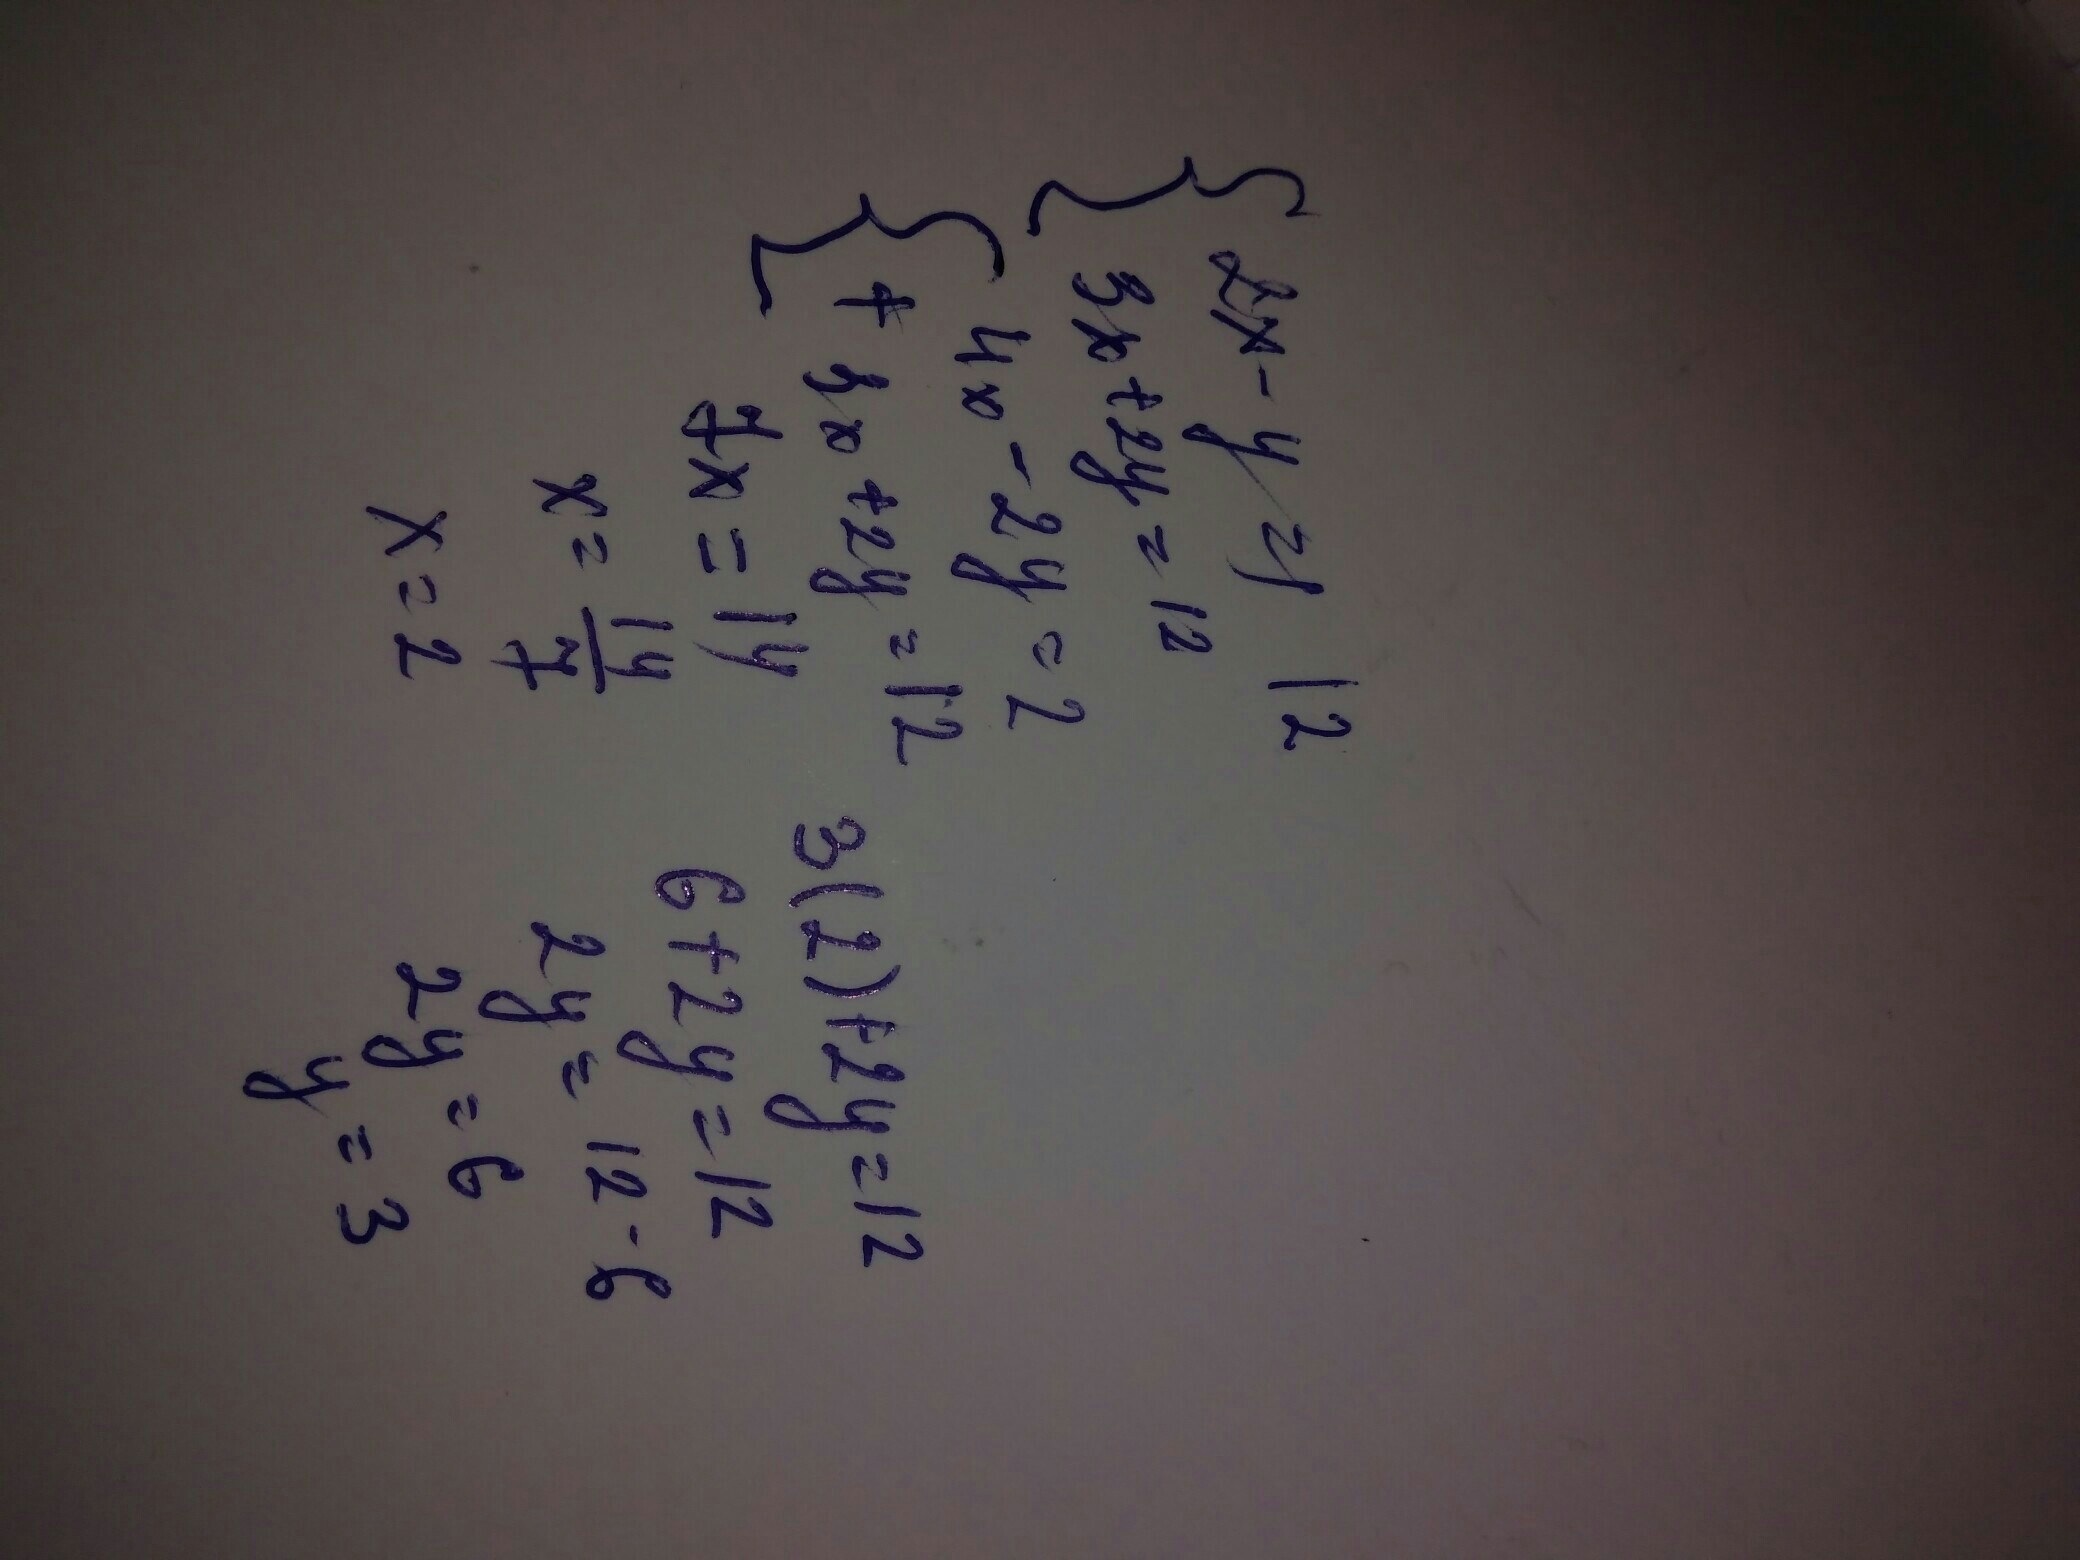 { 2x - y = 1 | 2
3x + 2y = 12
{ 4x - 2y = 2
+ 3x + 2y = 12
7x = 14
x = 14/7
x = 2
3(2) + 2y = 12
6 + 2y = 12
2y = 12 - 6
2y = 6
y = 3